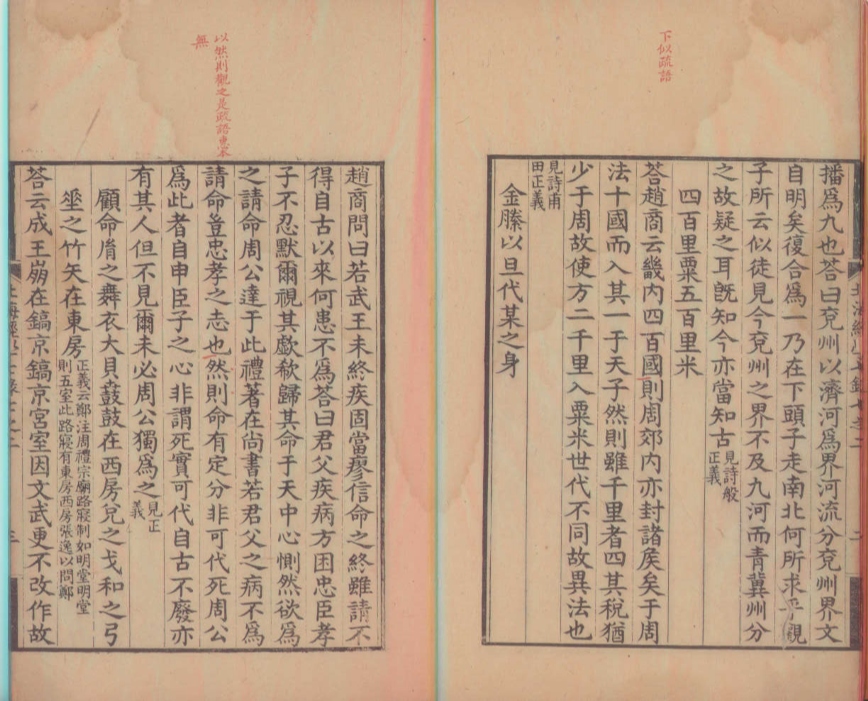 下似疏語
播爲九也荅曰兖州以濟河爲界河流分兖州界文
自明矣復合爲一乃在下頭子走南北何所求乎觀
子所云似徒見今兖州之界不及九河而青冀州分
之故疑之耳旣知今亦當知古見詩般
正義
四百里粟五百里米
荅趙商云畿内四百國則周郊内亦封諸矦矣于周
法十國而入其一于天子然則雖千里者四其稅猶
少于周故使方二千里入粟米世代不同故異法也
見詩甫
田正義
金縢以旦代某之身
以然則觀之是疏語惠本
無
趙商問曰若武王未終疾固當瘳信命之終雖請不
得自古以來何患不爲荅曰君父疾病方困忠臣孝
子不忍默爾視其歔欷歸其命于天中心惻然欲爲
之請命周公達于此禮著在尚書若君父之病不爲
請命豈忠孝之志也然則命有定分非可代死周公
爲此者自申臣子之心非謂死實可代自古不廢亦
有其人但不見爾未必周公獨爲之見正
義
顧命胤之舞衣大貝鼖鼓在西房兊之戈和之弓
垂之竹矢在東房正義云鄭注周禮宗廟路寢制如明堂明堂
則五室此路寢有東房西房張逸以問鄭
荅云成王崩在鎬京鎬京宮室因文武更不改作故
三